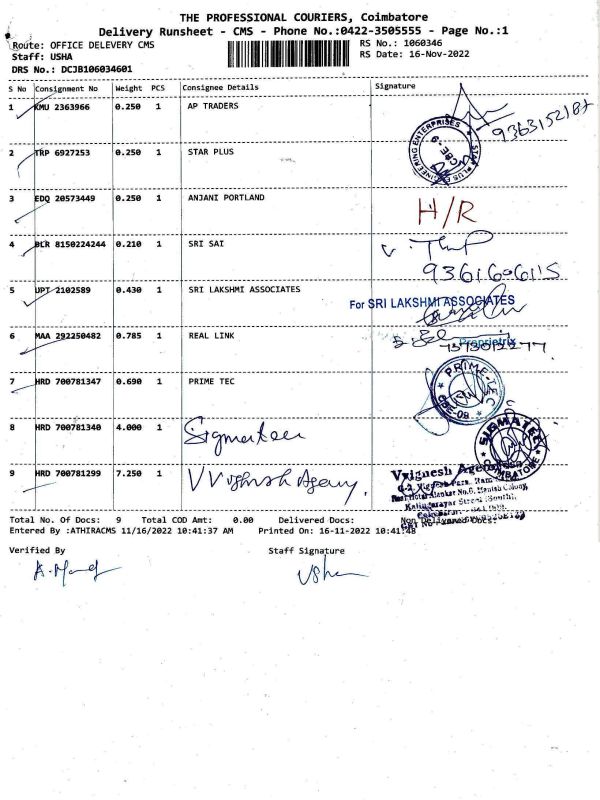 THE PROFESSIONAL COURIERS, Coimbatore
Delivery Runsheet - CMS - Phone No.:0422-3505555 - Page No.:1
Route: OFFICE DELEVERY CMS
RS No.: 1060346
Staff: USHA
RS Date: 16-Nov-2022
DRS No.: DCJB106034601
S No Consignment No Weight PCS Consignee Details Signature
1 KMU 2363966 0.250 1 AP TRADERS
9363152187
2 TRP 6927253 0.250 1 STAR PLUS
STAR PLUS ENGINEERING ENTERPRISES
CBE-9
3 EDQ 20573449 0.250 1 ANJANI PORTLAND
H/R
4 BLR 8150224244 0.210 1 SRI SAI
9361606115
5 UPT 2102589 0.430 1 SRI LAKSHMI ASSOCIATES
For SRI LAKSHMI ASSOCIATES
Proprietrix
6 MAA 292250482 0.785 1 REAL LINK
7 HRD 700781347 0.690 1 PRIME TEC
PRIME-TEC
CBE-09
8 HRD 700781340 4.000 1 Sigmatee
SIGMATEE
COIMBATORE
9 HRD 700781299 7.250 1 V Vighnesh Agency.
Vvignesh Agencies
Total No. Of Docs: 9 Total COD Amt: 0.00 Delivered Docs: Non Delivered Docs:
Entered By :ATHIRACMS 11/16/2022 10:41:37 AM Printed On: 16-11-2022 10:41:48
Verified By Staff Signature
Usha